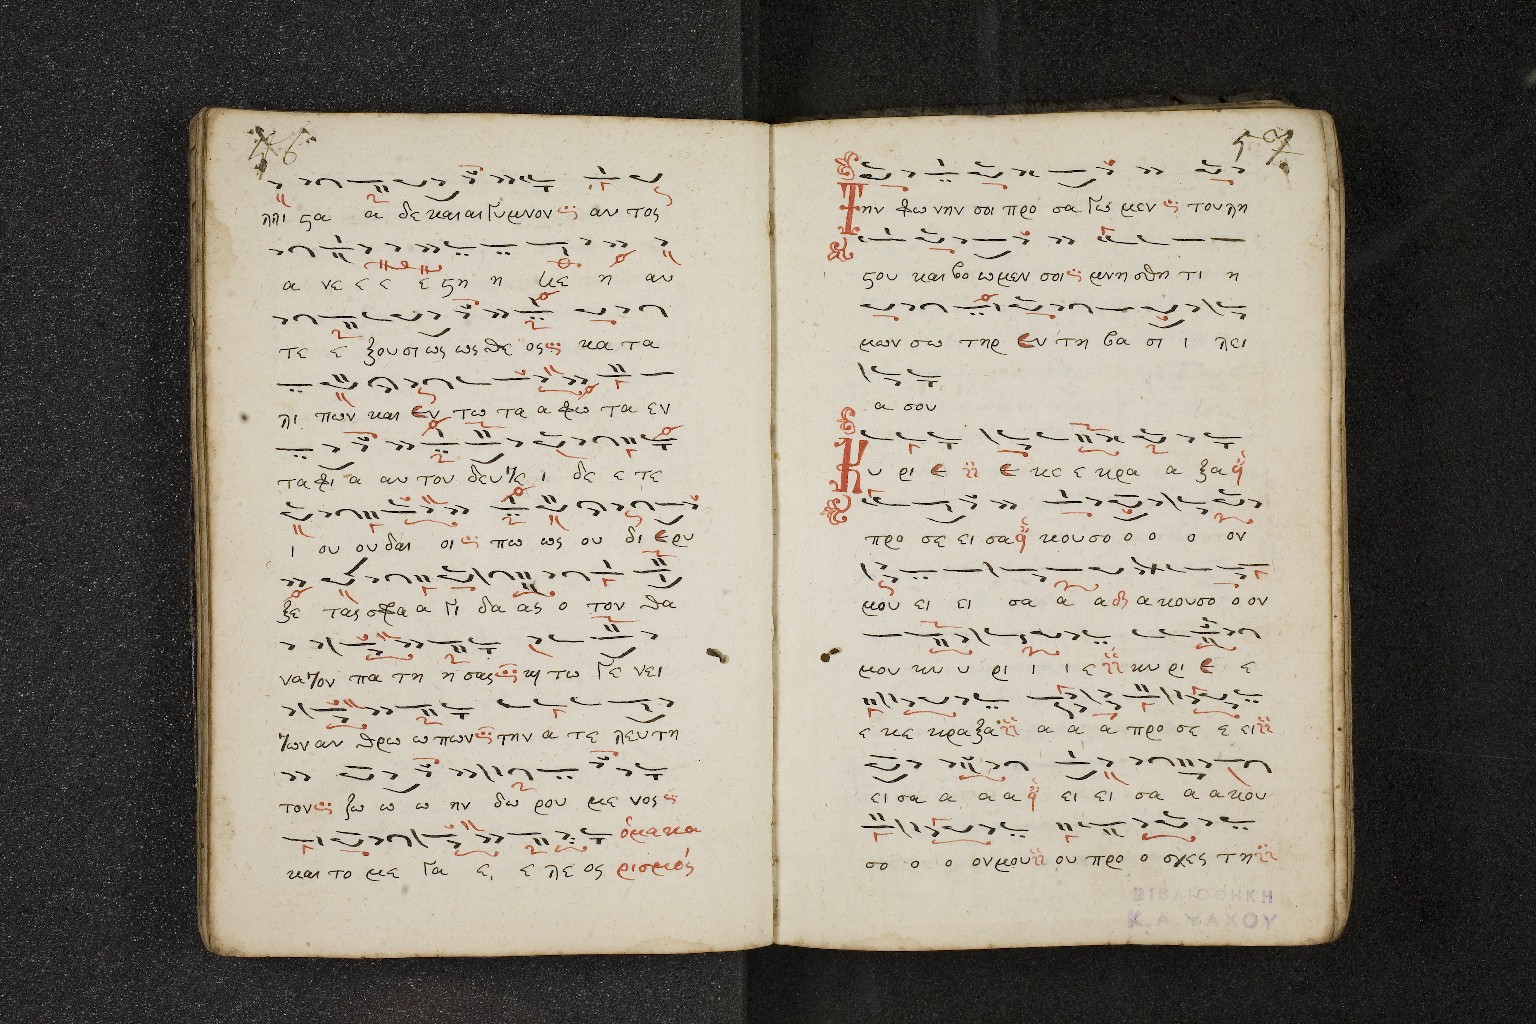 56
λλι ϛα α δε και αι Γυμνον αυ τος
α νε ε ε ε ϛη η κε η αυ
τε ε ξου σι ως ως θε ος κα τα
λι πων και εν τω τα α φω τα εν
τα φι α αυ του δευ τε ι δε ε τε
ι ου ου δαι οι πω ως ου δι ε ρυ
ξε τας σφα α γι δα ας ο τον θα
να τον πα τη η σας κη τω Γε νει
των αν θρω ω πων την α τε λευ τη
τον ζω ω ω ην δω ρου με νος
και το με Γα ε ε λε ος
ὁ μακα
ρισμός
57
Την φω νην σοι προ σα Γω μεν του λη
ϛου και βο ω μεν σοι μνη σθη τι η
μων σω τηρ εν τη βα σι ι λει
α σου
Κυ ρι ε ε κε ε κρα α ξα
προ σε ει σα κου σο ο ο ο ον
μου ει ει σα α α α κου σο ο ον
μου κυ υ ρι ι ι ε κυ ρι ε ε
ε κε κρα ξα α α α προ σε ε ει
ει σα α α α ει ει σα α α κου
σο ο ο ον μου ου προ ο σχες τη
ΒΙΒΛΙΟΘΗΚΗ
Κ. Α. ΨΑΧΟΥ